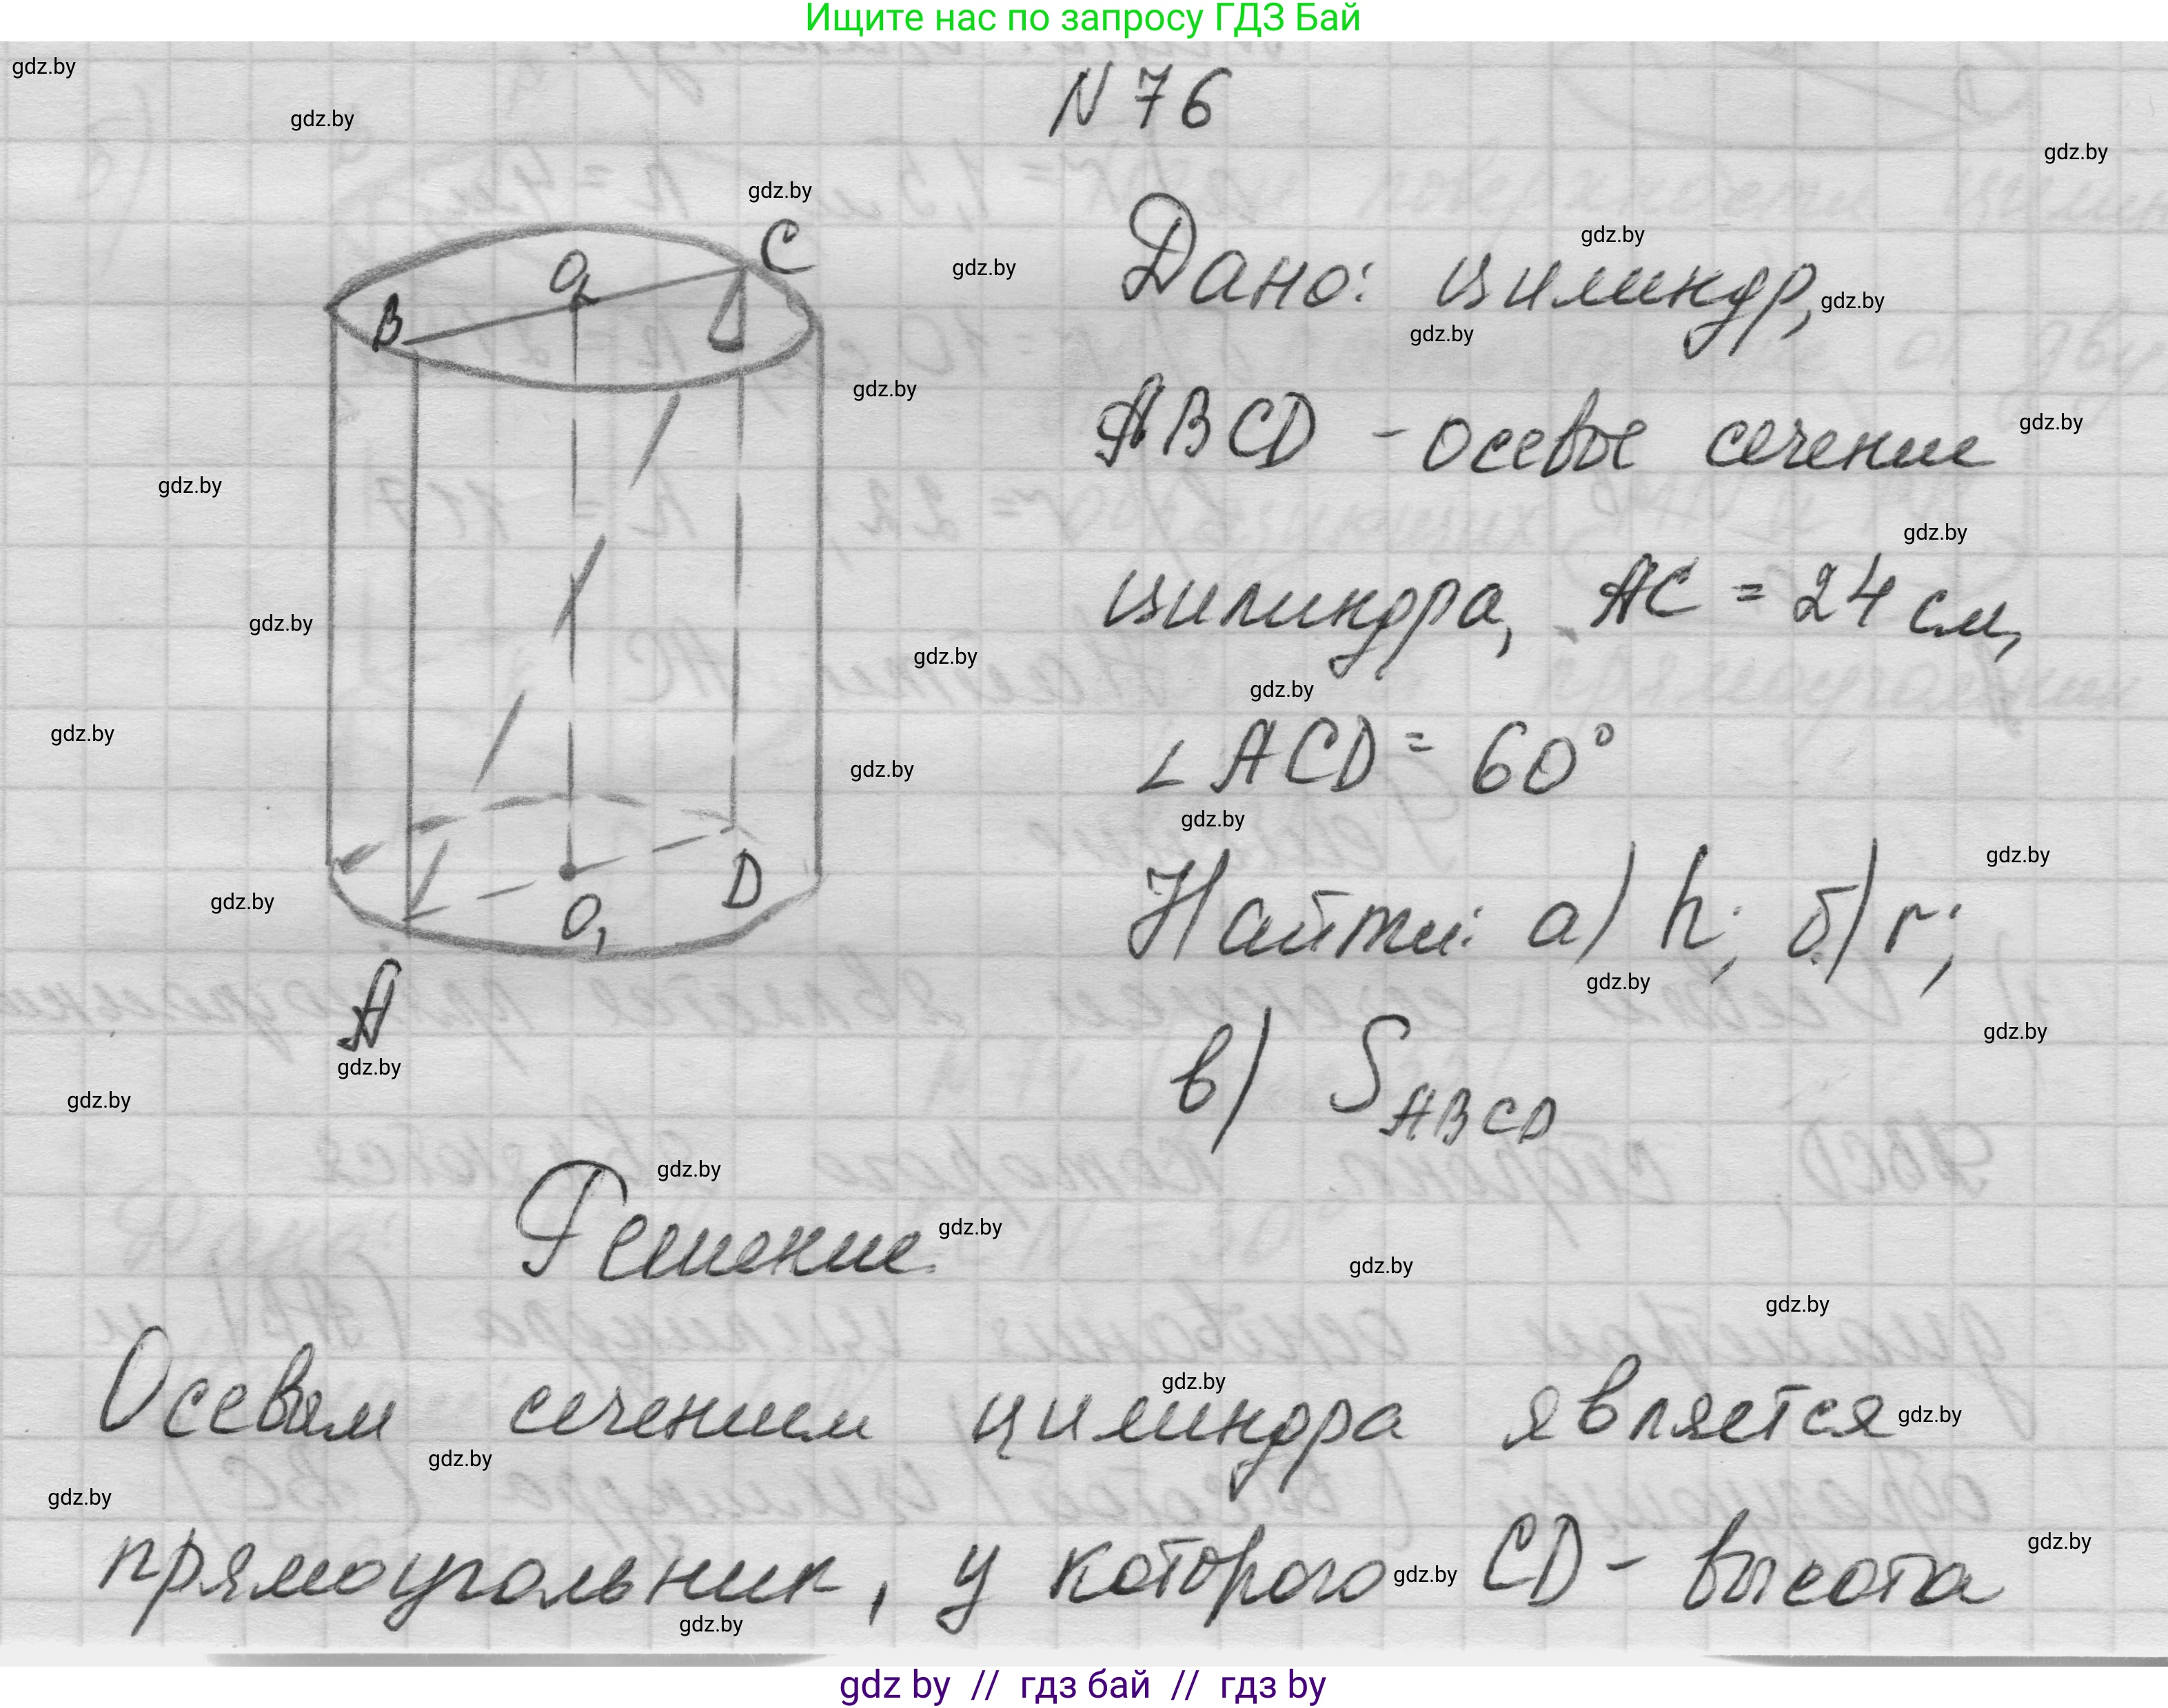 Ищите нас по запросу ГДЗ Бай
N 76
Дано: цилиндр,
ABCD - осевое сечение
цилиндра, AC = 24 см,
∠ ACD = 60°
Найти: а) h; б) r;
в) S ABCD
B
O
C
O₁
D
A
Решение
Осевым сечением цилиндра является
прямоугольник, у которого CD - высота
gdz.by
gdz by // гдз бай // гдз by